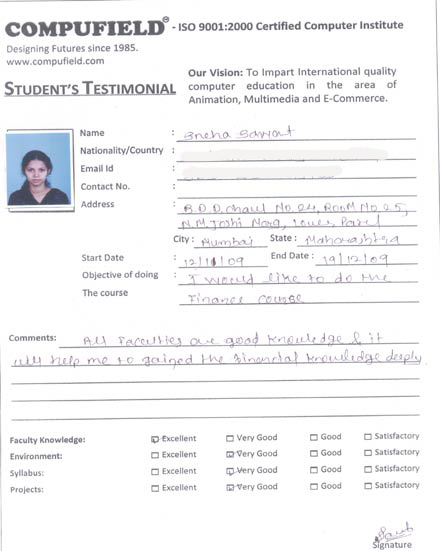 COMPUFIELD® - ISO 9001:2000 Certified Computer Institute
Designing Futures since 1985.
www.compufield.com
Our Vision: To Impart International quality
computer education in the area of
Animation, Multimedia and E-Commerce.
STUDENT'S TESTIMONIAL
Name : Sneha Sawant
Nationality/Country :
Email Id :
Contact No. :
Address : B.D.D. chawl No. 24, Room No 25,
N.M. Joshi Marg, Lower Parel
City : Mumbai State : Maharashtra
Start Date : 12/11/09 End Date : 19/12/09
Objective of doing : I would like to do the
The course Finance course
Comments: All Faculties are good knowledge & it
will help me to gained the financial knowledge deeply
Faculty Knowledge: Excellent Very Good Good Satisfactory
Environment: Excellent Very Good Good Satisfactory
Syllabus: Excellent Very Good Good Satisfactory
Projects: Excellent Very Good Good Satisfactory
Signature